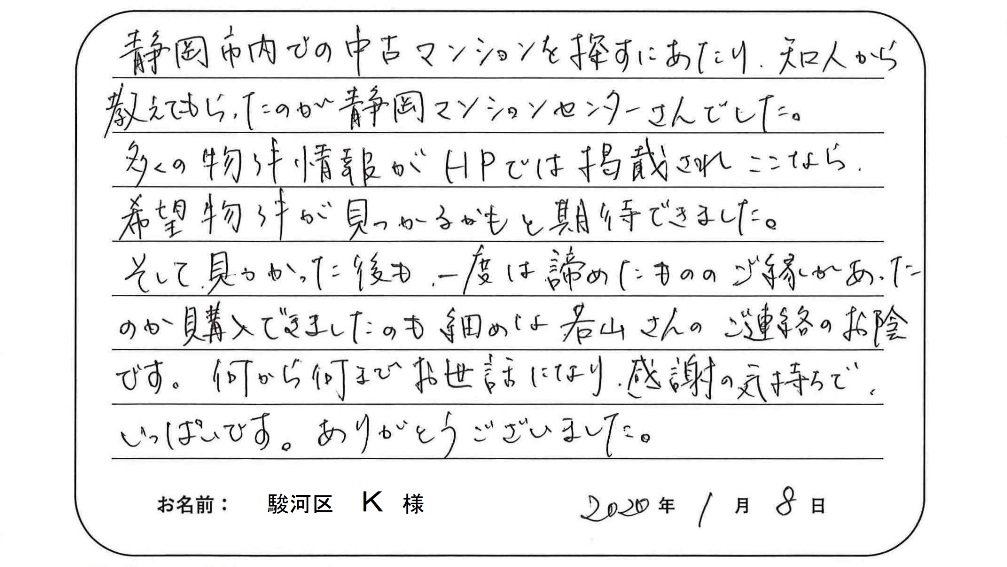 静岡市内での中古マンションを探すにあたり、知人から
教えてもらったのが静岡マンションセンターさんでした。
多くの物件情報がHPでは掲載されここなら、
希望物件が見つかるかもと期待できました。
そして、見つかった後も、一度は諦めたもののご縁があった
のか購入できましたのも細めな若山さんのご連絡のお陰
です。何から何までお世話になり、感謝の気持ちで、
いっぱいです。ありがとうございました。
お名前： 駿河区 K 様 2020年 1月 8日